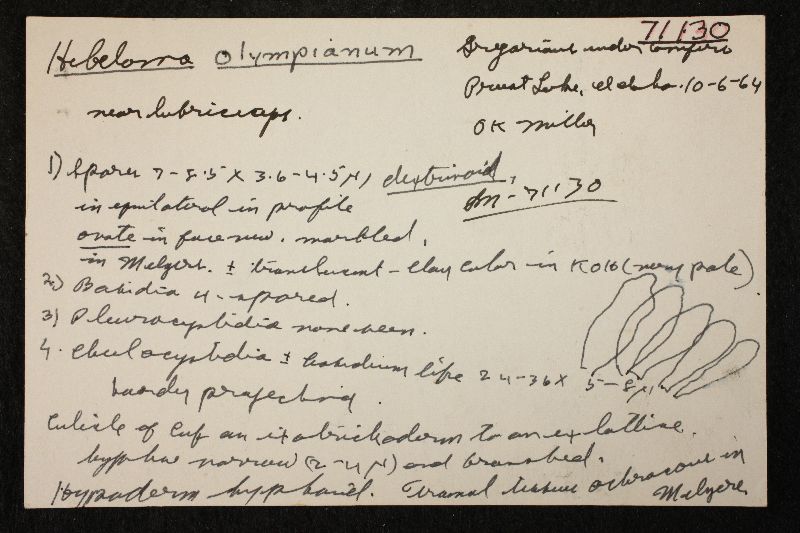 71130
Hebeloma olympianum
Gregarious under conifers
Priest Lake, Idaho. 10-6-64
near lubriceps.
OK Miller
1) Spores 7-8.5 X 3.6-4.5 µ, dextrinoid,
Sm-71130
inequilateral in profile
ovate in face view. marbled,
in Melzers. ± translucent - clay color in KOH (very pale).
2) Basidia 4-spored.
3) Pleurocystidia none seen.
4. Cheilocystidia ± basidium like 24-36 X 5-8 µ
hardly projecting.
Cuticle of cap an ixotrichoderm to an ixolattice.
hyphae narrow (2-4 µ) and branched.
Hypoderm hyphoid. Tramal tissue ochraceous in
Melzers